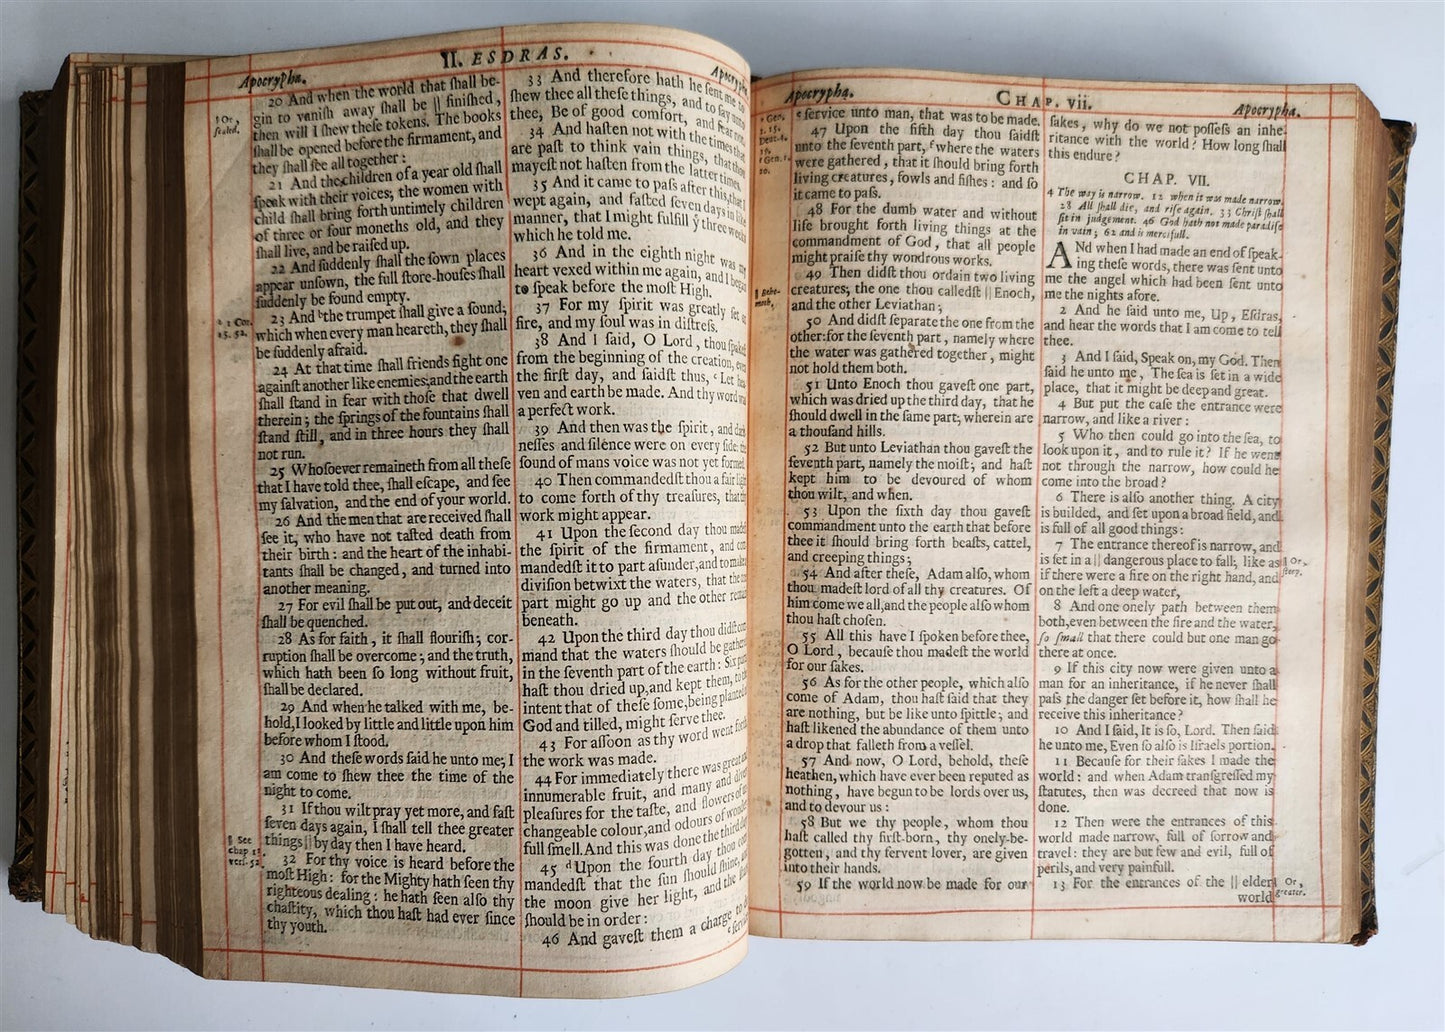 II. ESDRAS.
Apocrypha.
Apocrypha.
20 And when the world that ſhall be-
gin to vaniſh away ſhall be || finiſhed,
then will I ſhew theſe tokens. The books
ſhall be opened before the firmament, and
they ſhall ſee all together :
21 And the children of a year old ſhall
ſpeak with their voices; the women with
child ſhall bring forth untimely children
of three or four moneths old, and they
ſhall live, and be raiſed up.
22 And ſuddenly ſhall the ſown places
appear unſown, the full ſtore-houſes ſhall
ſuddenly be found empty.
23 And the trumpet ſhall give a ſound;
which when every man heareth, they ſhall
be ſuddenly afraid.
24 At that time ſhall friends fight one
againſt another like enemies; and the earth
ſhall ſtand in fear with thoſe that dwell
therein ; the ſprings of the fountains ſhall
ſtand ſtill, and in three hours they ſhall
not run.
25 Whoſoever remaineth from all theſe
that I have told thee, ſhall eſcape, and ſee
my ſalvation, and the end of your world.
26 And the men that are received ſhall
ſee it, who have not taſted death from
their birth : and the heart of the inhabi-
tants ſhall be changed, and turned into
another meaning.
27 For evil ſhall be put out, and deceit
ſhall be quenched.
28 As for faith, it ſhall flouriſh; cor-
ruption ſhall be overcome ; and the truth,
which hath been ſo long without fruit,
ſhall be declared.
29 And when he talked with me, be-
hold, I looked by little and little upon him
before whom I ſtood.
30 And theſe words ſaid he unto me; I
am come to ſhew thee the time of the
night to come.
31 If thou wilt pray yet more, and faſt
ſeven days again, I ſhall tell thee greater
things || by day then I have heard.
32 For thy voice is heard before the
moſt High : for the Mighty hath ſeen thy
righteous dealing : he hath ſeen alſo thy
chaſtity, which thou haſt had ever ſince
thy youth.
|| Or,
ſealed.
1 Cor.
15. 52.
|| See
chap 13.
verſ. 52.
33 And therefore hath he ſent me to
ſhew thee all theſe things, and to ſay unto
thee, Be of good comfort, and fear not
34 And haſten not with the times that
are paſt to think vain things, that thou
mayeſt not haſten from the latter times.
35 And it came to paſs after this, that I
wept again, and faſted ſeven days in like
manner, that I might fulfill ẏ three weeks
which he told me.
36 And in the eighth night was my
heart vexed within me again, and I began
to ſpeak before the moſt High.
37 For my ſpirit was greatly ſet on
fire, and my ſoul was in diſtreſs.
38 And I ſaid, O Lord, thou ſpakeſt
from the beginning of the creation, even
the firſt day, and ſaidſt thus, Let hea-
ven and earth be made. And thy word was
a perfect work.
39 And then was the ſpirit, and dark
neſſes and ſilence were on every ſide: the
ſound of mans voice was not yet formed.
40 Then commandedſt thou a fair light
to come forth of thy treaſures, that thy
work might appear.
41 Upon the ſecond day thou madeſt
the ſpirit of the firmament, and com
mandedſt it to part aſunder, and to make a
diviſion betwixt the waters, that the one
part might go up and the other remain
beneath.
42 Upon the third day thou didſt com
mand that the waters ſhould be gathered
in the ſeventh part of the earth : Six parts
haſt thou dried up, and kept them, to the
intent that of theſe ſome, being planted of
God and tilled, might ſerve thee.
43 For aſſoon as thy word went forth
the work was made.
44 For immediately there was great and
innumerable fruit, and many and divers
pleaſures for the taſte, and flowers of
changeable colour, and odours of wonderful
ſmell. And this was done the third day.
45 d Upon the fourth day thou com
mandedſt that the ſun ſhould ſhine, and
the moon give her light, and the ſtars
ſhould be in order :
46 And gaveſt them a charge to do
ſervice
Apocrypha.
CHAP. vii.
Apocrypha.
ſervice unto man, that was to be made.
47 Upon the fifth day thou ſaidſt
unto the ſeventh part, where the waters
were gathered, that it ſhould bring forth
living creatures, fowls and fiſhes : and ſo
it came to paſs.
48 For the dumb water and without
life brought forth living things at the
commandment of God, that all people
might praiſe thy wondrous works.
49 Then didſt thou ordain two living
creatures; the one thou calledſt || Enoch,
and the other Leviathan ;
50 And didſt ſeparate the one from the
other: for the ſeventh part, namely where
the water was gathered together, might
not hold them both.
51 Unto Enoch thou gaveſt one part,
which was dried up the third day, that he
ſhould dwell in the ſame part; wherein are
a thouſand hills.
52 But unto Leviathan thou gaveſt the
ſeventh part, namely the moiſt; and haſt
kept him to be devoured of whom
thou wilt, and when.
53 Upon the ſixth day thou gaveſt
commandment unto the earth that before
thee it ſhould bring forth beaſts, cattel,
and creeping things ;
54 And after theſe, Adam alſo, whom
thou madeſt lord of all thy creatures. Of
him come we all, and the people alſo whom
thou haſt choſen.
55 All this have I ſpoken before thee,
O Lord, becauſe thou madeſt the world
for our ſakes.
56 As for the other people, which alſo
come of Adam, thou haſt ſaid that they
are nothing, but be like unto ſpittle; and
haſt likened the abundance of them unto
a drop that falleth from a veſſel.
57 And now, O Lord, behold, theſe
heathen, which have ever been reputed as
nothing, have begun to be lords over us,
and to devour us :
58 But we thy people, whom thou
haſt called thy firſt-born, thy onely-be-
gotten, and thy fervent lover, are given
into their hands.
59 If the world now be made for our
Gen.
Deut. 4.
Gen. 1.
20.
|| Behe-
moth.
ſakes, why do we not poſſeſs an inhe-
ritance with the world? How long ſhall
this endure ?
CHAP. VII.
4 The way is narrow. 12 when it was made narrow.
28 All ſhall die, and riſe again. 33 Chriſt ſhall
ſit in judgement. 46 God hath not made paradiſe
in vain ; 62 and is mercifull.
ANd when I had made an end of ſpeak-
ing theſe words, there was ſent unto
me the angel which had been ſent unto
me the nights afore.
2 And he ſaid unto me, Up, Eſdras,
and hear the words that I am come to tell
thee.
3 And I ſaid, Speak on, my God. Then
ſaid he unto me, The ſea is ſet in a wide
place, that it might be deep and great.
4 But put the caſe the entrance were
narrow, and like a river :
5 Who then could go into the ſea, to
look upon it, and to rule it? If he went
not through the narrow, how could he
come into the broad ?
6 There is alſo another thing. A city
is builded, and ſet upon a broad field, and
is full of all good things :
7 The entrance thereof is narrow, and
is ſet in a || dangerous place to fall; like as
if there were a fire on the right hand, and
on the left a deep water,
8 And one onely path between them
both, even between the fire and the water,
ſo ſmall that there could but one man go
there at once.
9 If this city now were given unto a
man for an inheritance, if he never ſhall
paſs the danger ſet before it, how ſhall he
receive this inheritance?
10 And I ſaid, It is ſo, Lord. Then ſaid
he unto me, Even ſo alſo is Iſraels portion.
11 Becauſe for their ſakes I made the
world : and when Adam tranſgreſſed my
ſtatutes, then was decreed that now is
done.
12 Then were the entrances of this
world made narrow, full of ſorrow and
travel : they are but few and evil, full of
perils, and very painfull.
13 For the entrances of the || elder
world
|| Or,
ſteep.
|| Or,
greater.